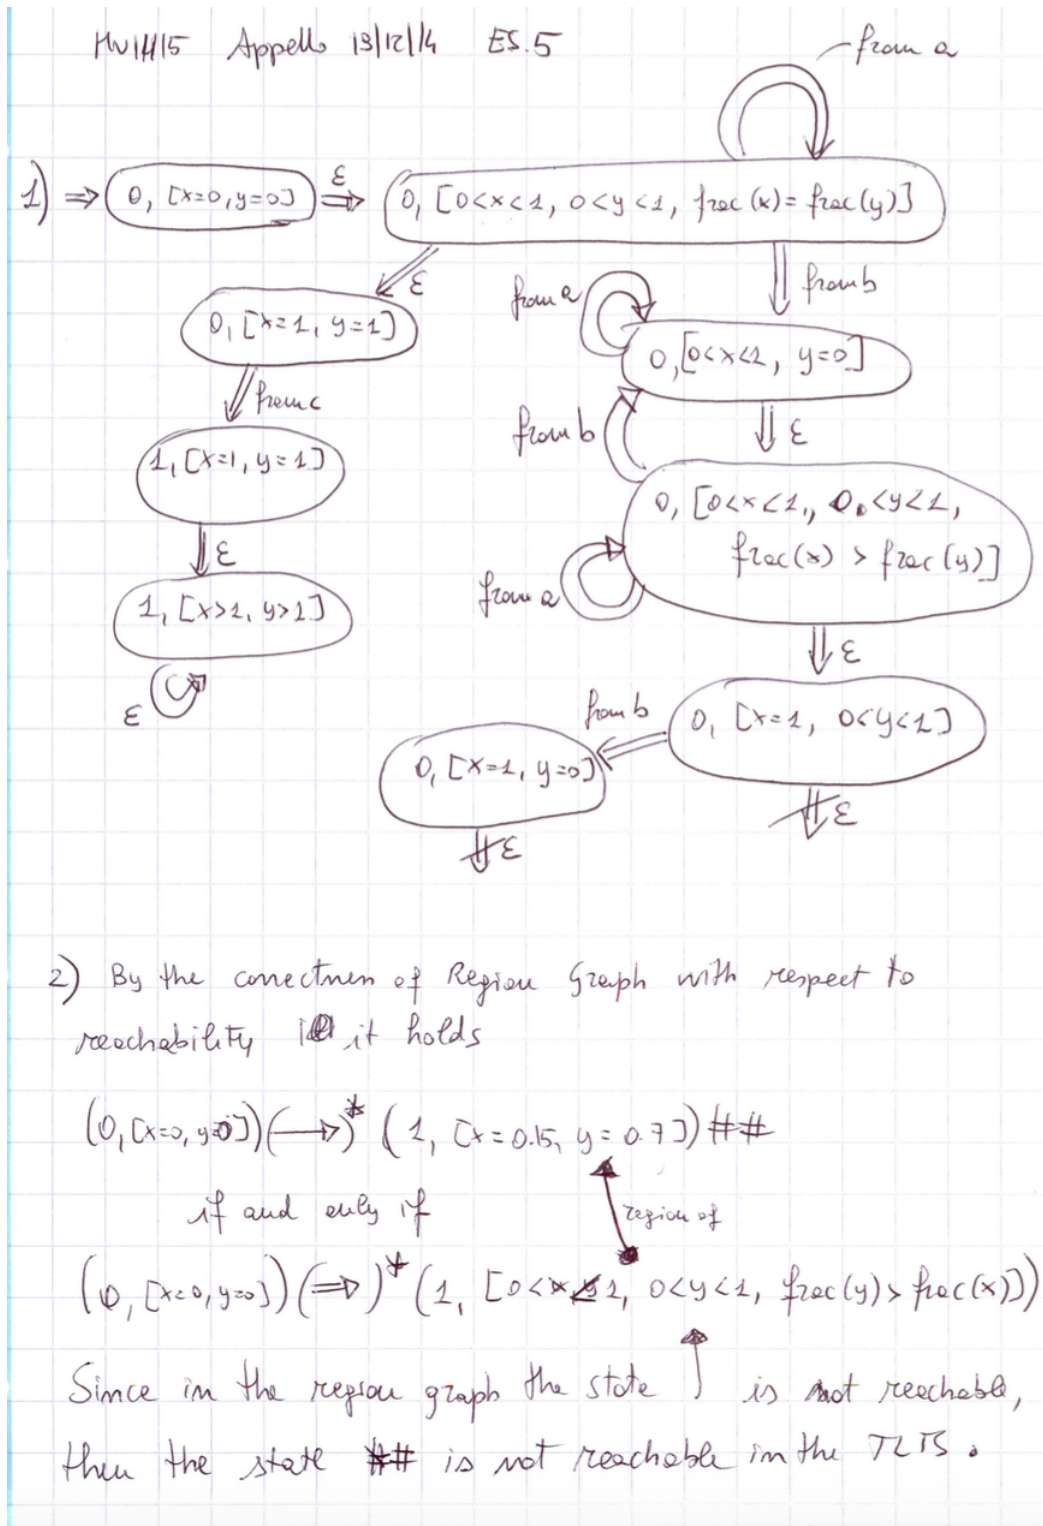 MV14/15 Appello 19/12/14 ES.5
from a
1) ⇒ 0, [x=0,y=0] ε ⇒ 0, [0<x<1, 0<y<1, frac(x)=frac(y)]
ε
from b
0, [x=1, y=1]
from a
0, [0<x<1, y=0]
from c
from b
ε
1, [x=1, y=1]
0, [0<x<1, 0<y<1,
frac(x) > frac(y)]
ε
from a
1, [x>1, y>1]
ε
ε
from b
0, [x=1, 0<y<1]
0, [x=1, y=0]
ε
ε
2) By the correctness of Region Graph with respect to
reachability it holds
(0, [x=0, y=0]) (→)* (1, [x=0.15, y=0.7]) ##
if and only if
region of
(0, [x=0, y=0]) (⇒)* (1, [0<x<1, 0<y<1, frac(y)>frac(x)])
Since in the region graph the state ↑ is not reachable,
then the state ## is not reachable in the TLTS.